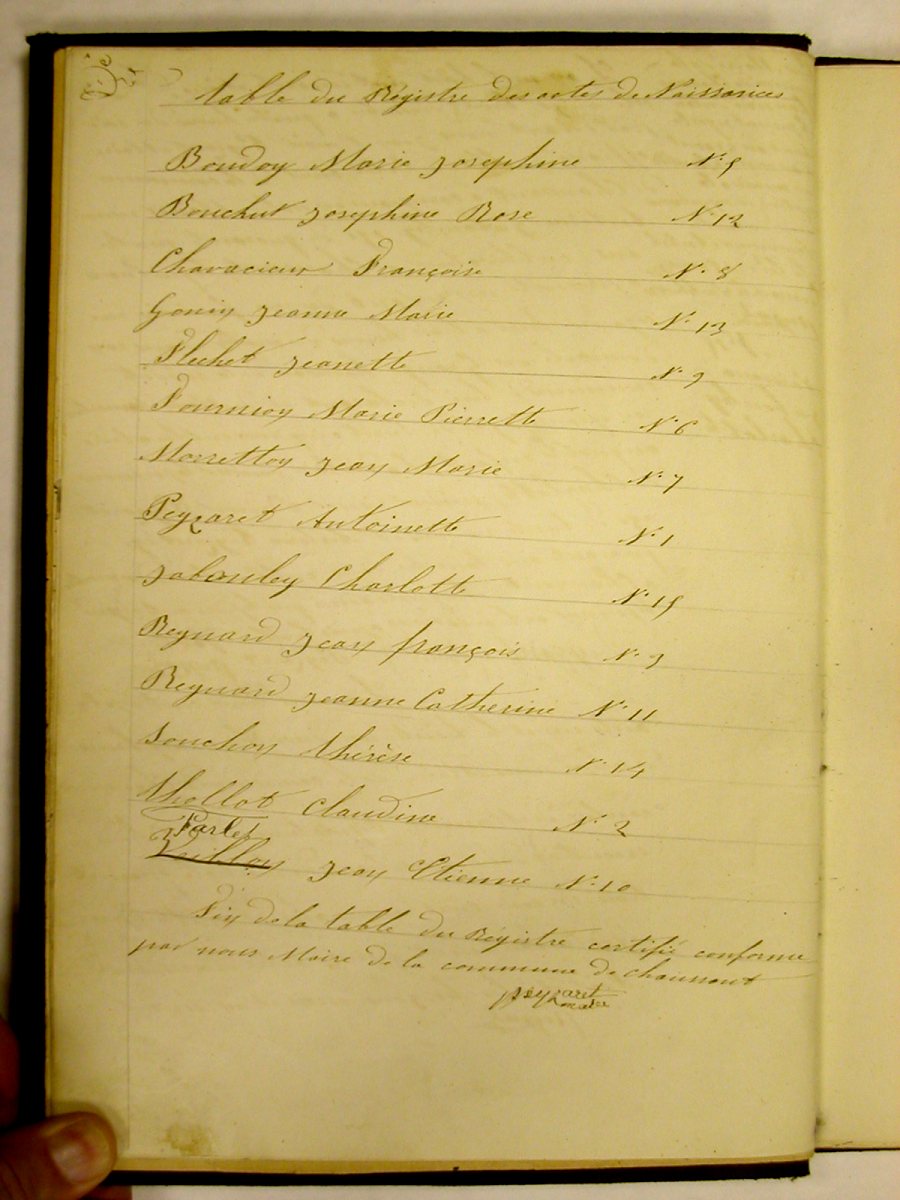 table du Régistre des actes de Naissances
Boudoy Marie Josephine N° 5
Bouchut Josephine Rose N° 12
Chavacieux Françoise N° 8
Gonin Jeanne Marie N° 13
Fluchet Jeanette N° 9
Fournion Marie Pierrette N° 6
Morretton Jean Marie N° 7
Peyzaret Antoinette N° 1
Jabouley Charlotte N° 15
Reynard Jean françois N° 3
Reynard Jeanne Catherine N° 11
Souchon thérèse N° 14
thollot Claudine N° 2
Jean Etienne N° 10
Fin de la table du Régistre certifié conforme
par nous Maire de la commune de Chaussant
peyzaret